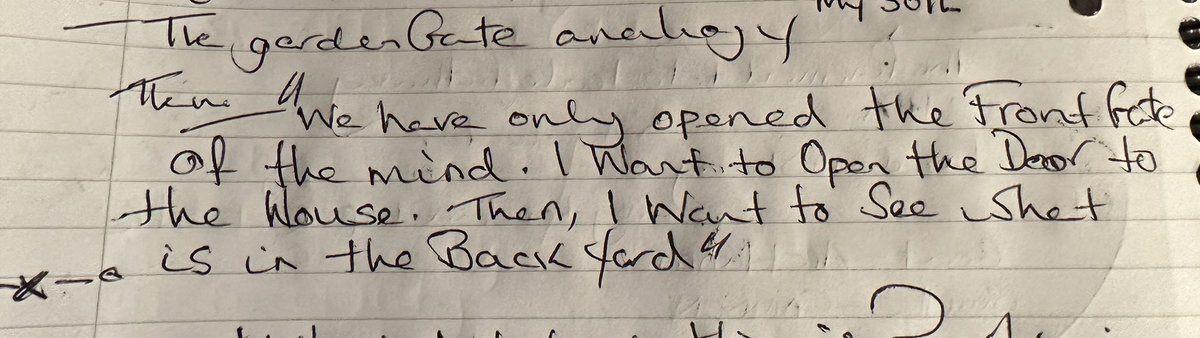 My
The garden Gate analogy
"We have only opened the Front Gate
of the mind. I Want to Open the Door to
the House. Then, I Want to See what
is in the Back Yard"